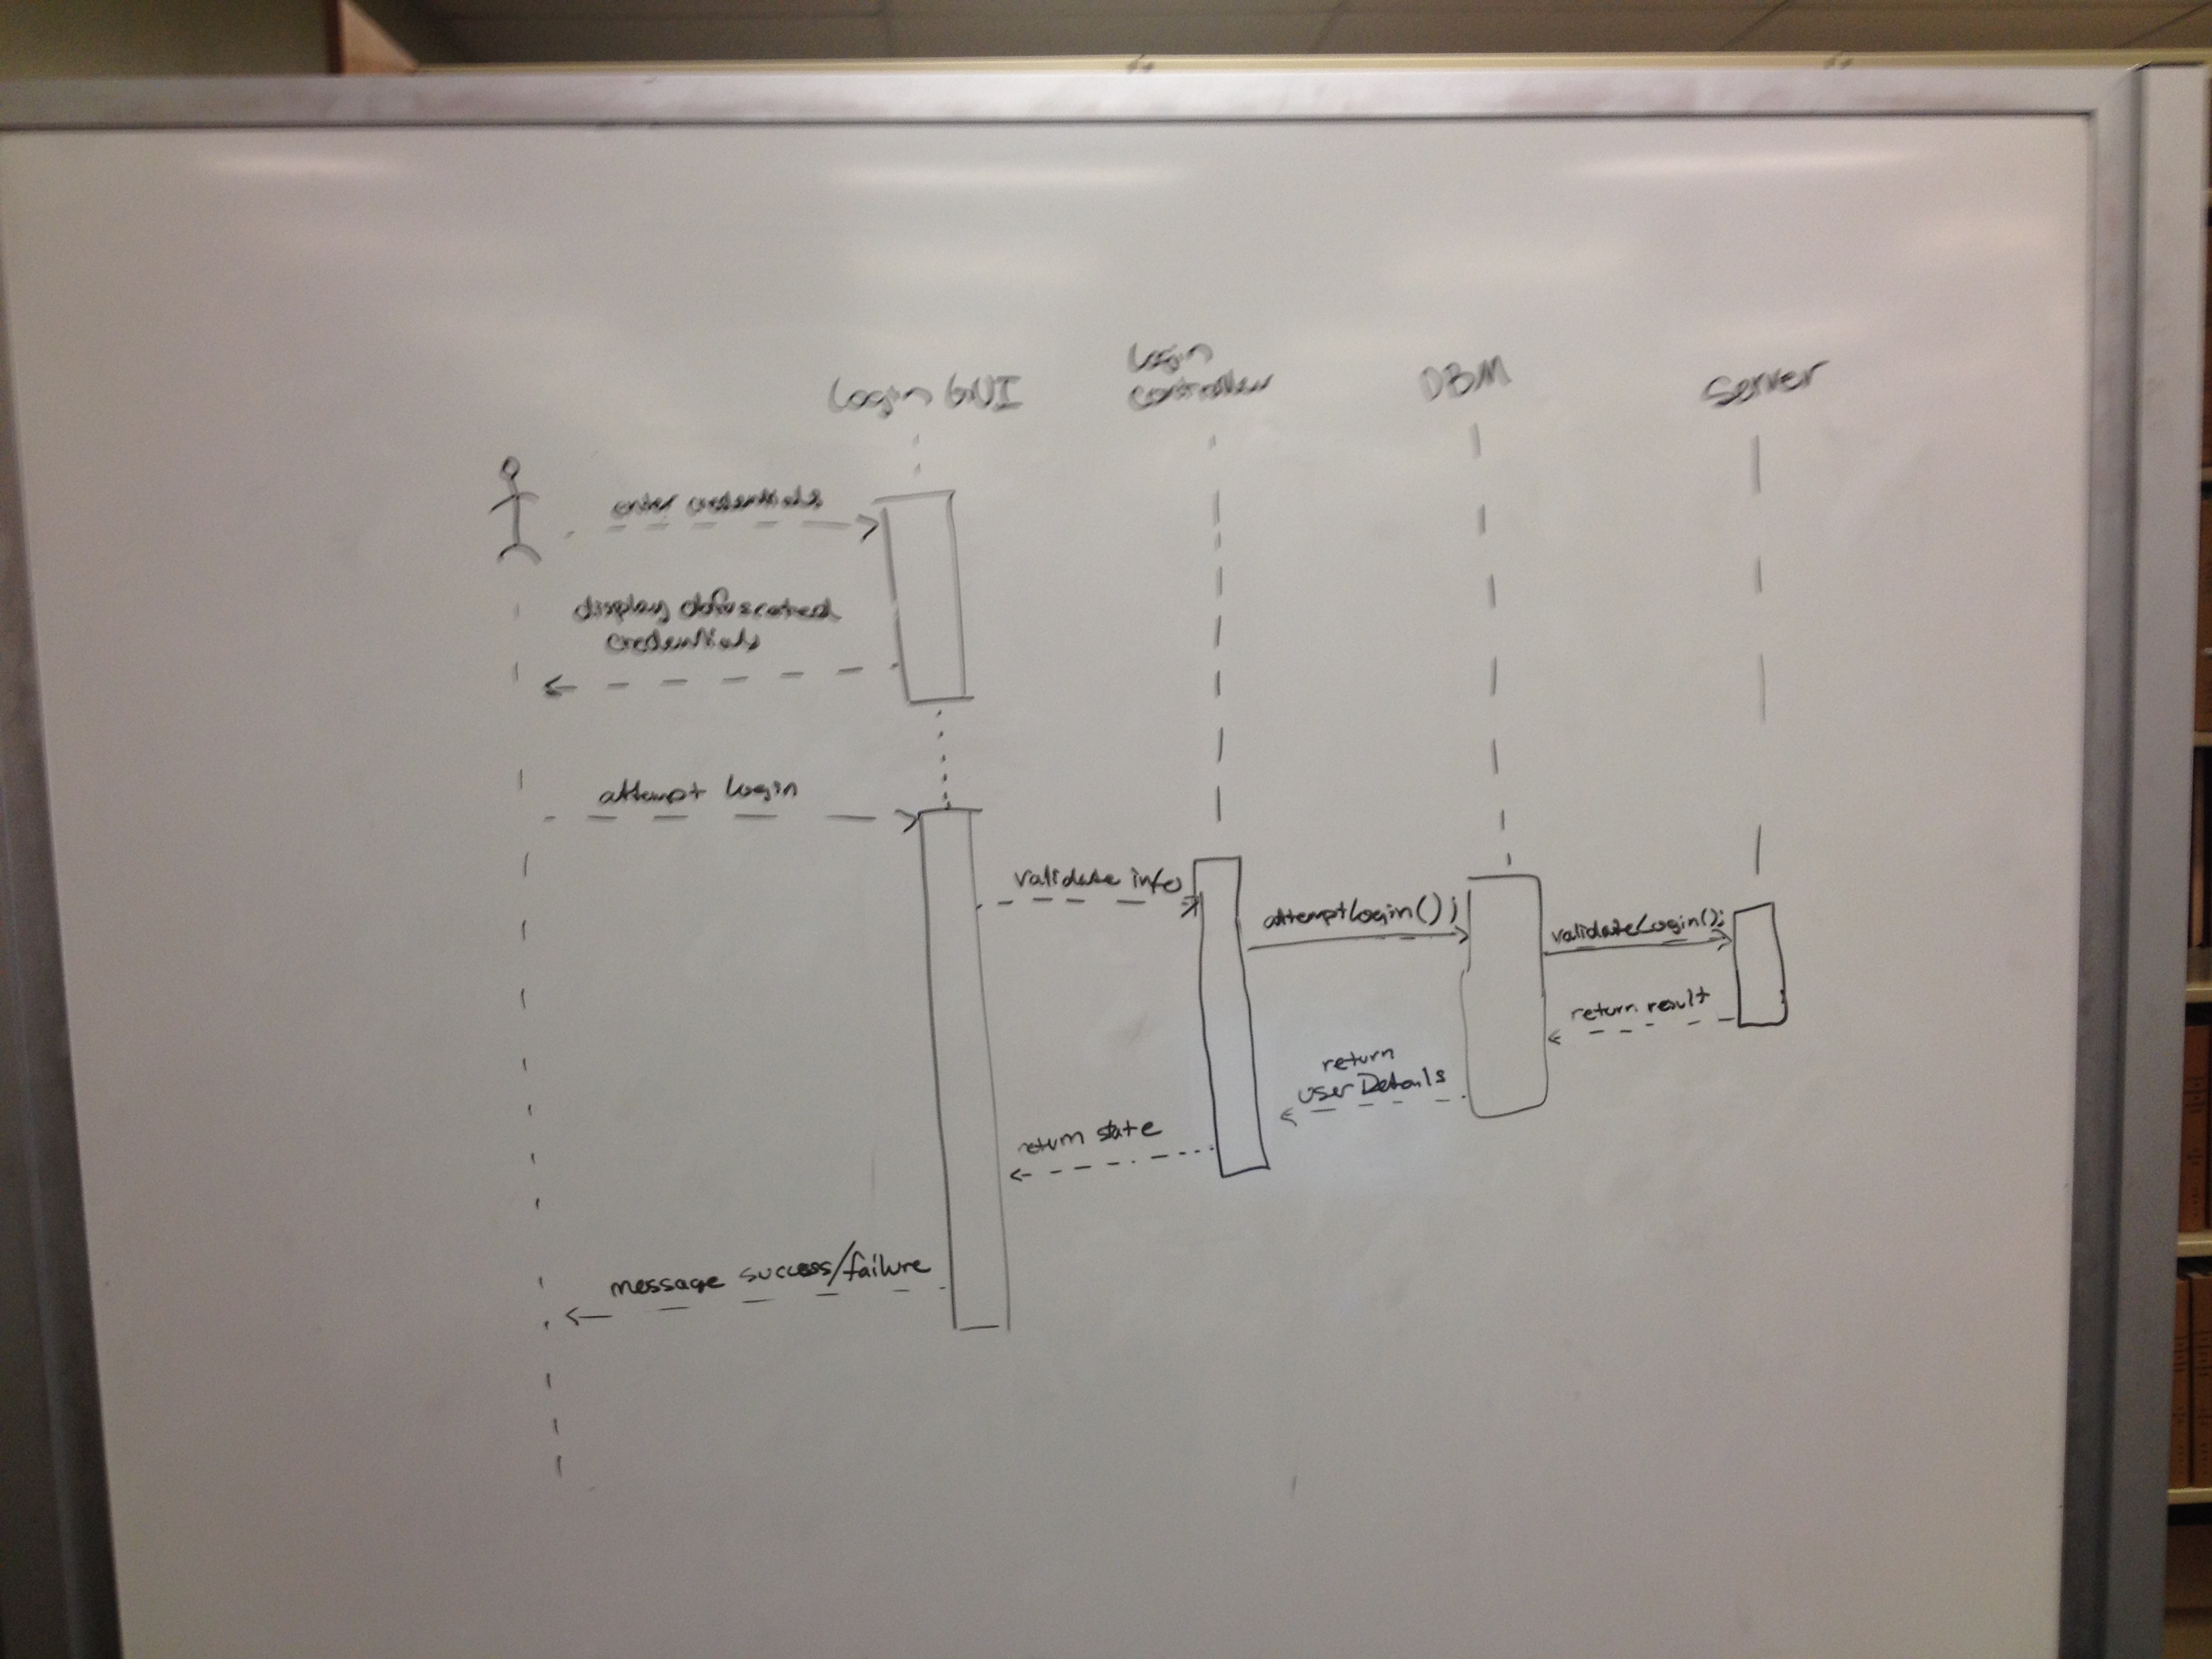 Login GUI
Login
controller
DBM
Server
enter credentials
display obfuscated
credentials
attempt login
validate info
attemptLogin();
validateLogin();
return result
return
userDetails
return state
message success/failure